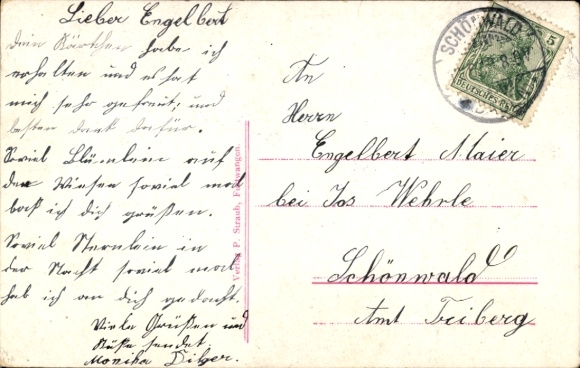 Lieber Engelbert
Dein Kärtchen habe ich
erhalten und es hat
mich sehr gefreut, und
besten dank dafür.
Soviel Blümlein auf
den Wiesen soviel mal
ich dich grüßen.
Soviel Sternlein in
der Nacht soviel mal
hab ich an dich gedacht.
Viele Grüßen und
Küße sendet
Monika Dilger.
Verlag P. Straub, Furtwangen.
An
Herrn
Engelbert Maier
bei Jos Wehrle
Schönwald
Amt Triberg
SCHÖNWALD
5
DEUTSCHES REICH